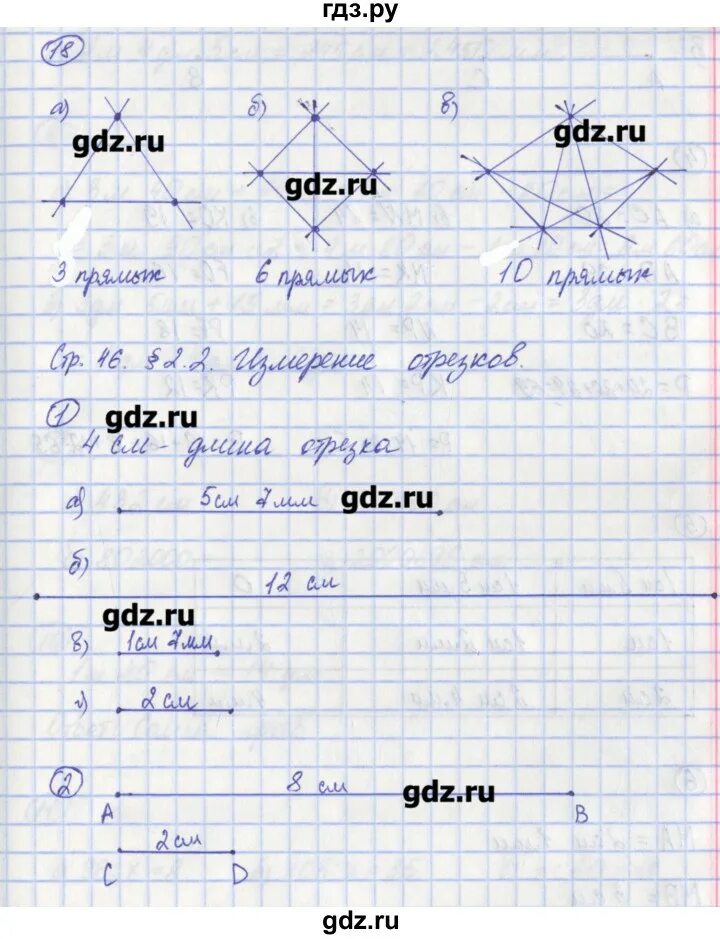 гдз.ру
18
а) б) в)
gdz.ru gdz.ru gdz.ru
3 прямых 6 прямых 10 прямых
Стр. 46. § 2.2. Измерение отрезков.
1 gdz.ru
4 см - длина отрезка
а) 5см 7мм gdz.ru
б) 12 см
gdz.ru
в) 1см 7мм
г) 2 см
2 8 см gdz.ru
A B
2см
C D
gdz.ru